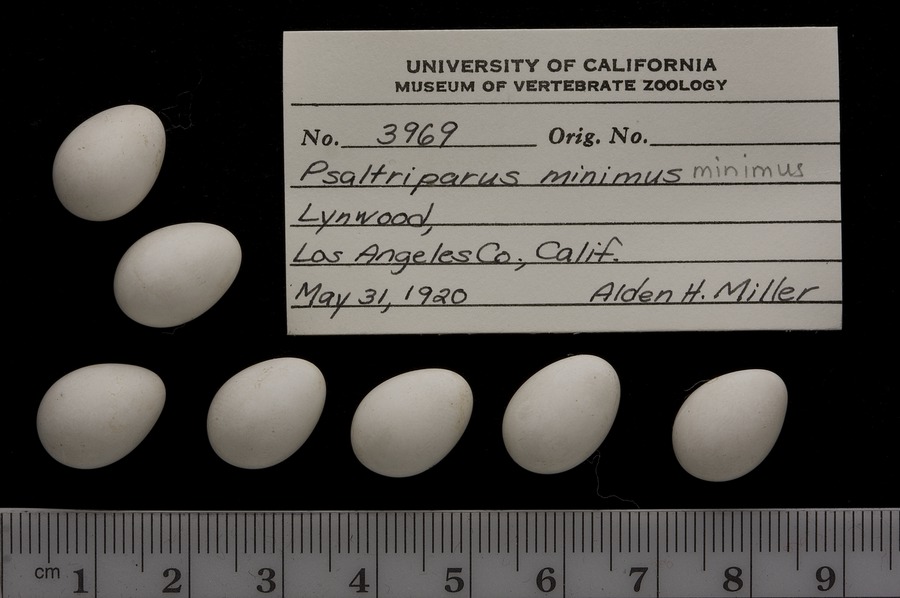 UNIVERSITY OF CALIFORNIA
MUSEUM OF VERTEBRATE ZOOLOGY
No. 3969 Orig. No.
Psaltriparus minimus minimus
Lynwood,
Los Angeles Co., Calif.
May 31, 1920 Alden H. Miller
cm 1 2 3 4 5 6 7 8 9